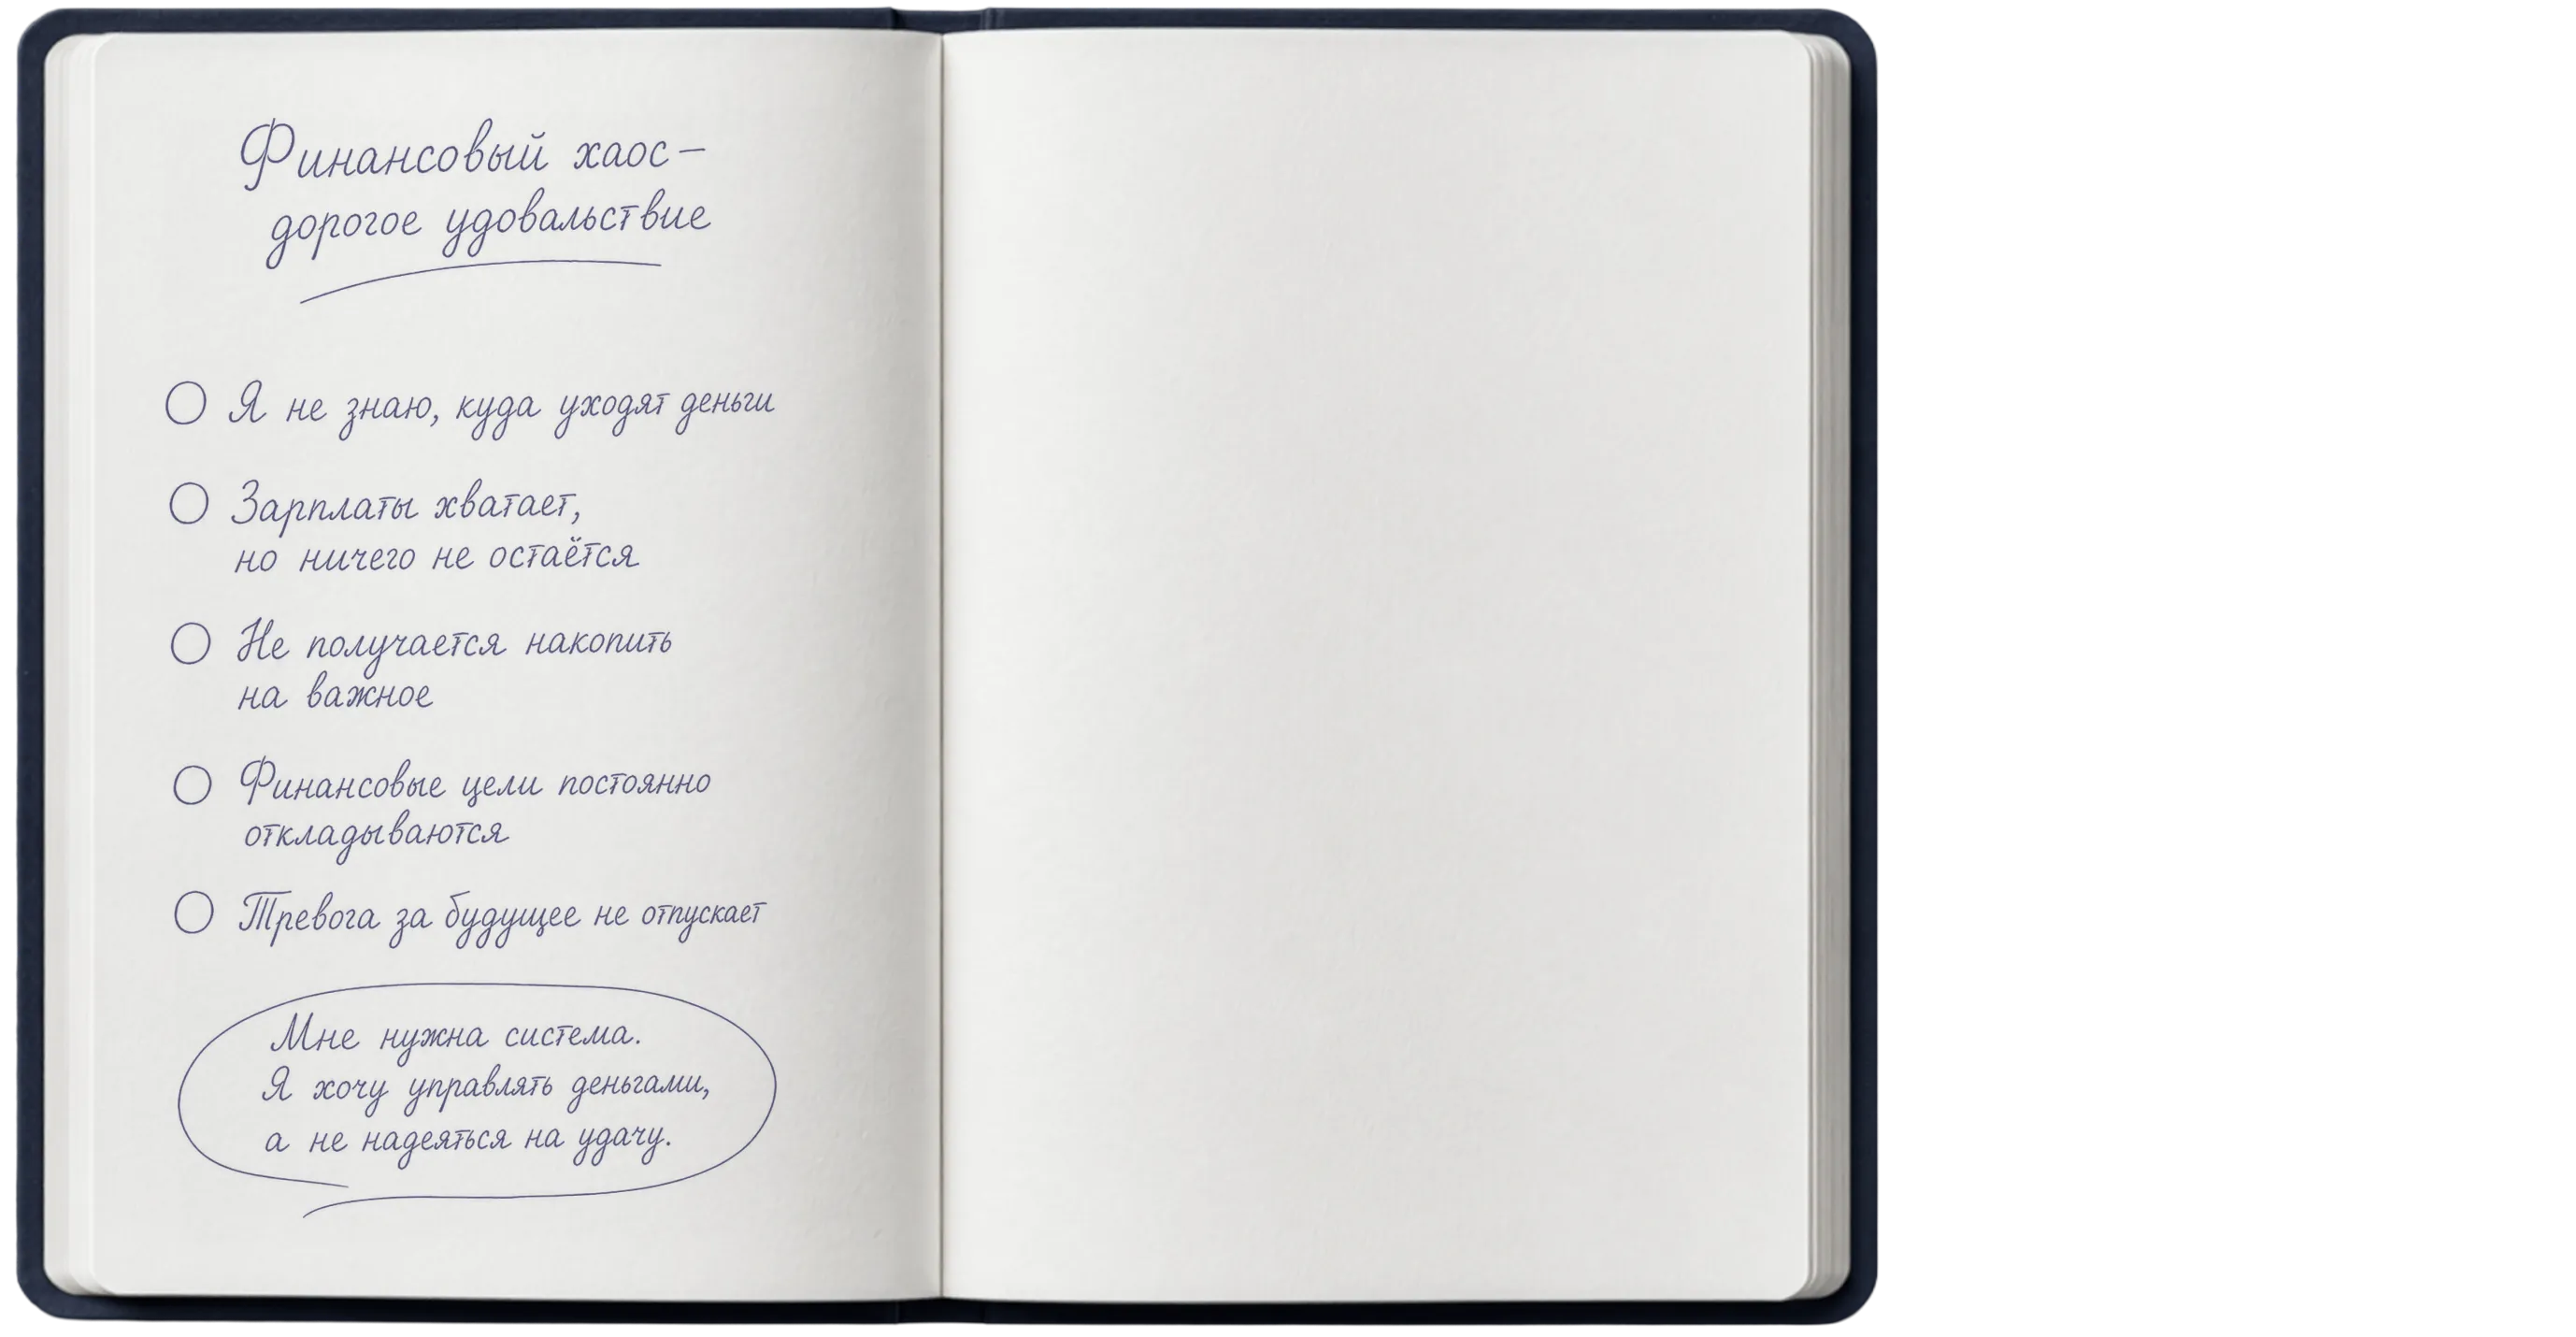 Финансовый хаос –
дорогое удовальствие
Я не знаю, куда уходят деньги
Зарплаты хватает,
но ничего не остаётся
Не получается накопить
на важное
Финансовые цели постоянно
откладываются
Тревога за будущее не отпускает
Мне нужна система.
Я хочу управлять деньгами,
а не надеяться на удачу.